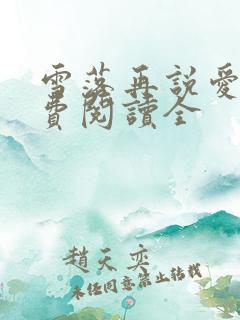 雪落再說愛
費閱讀全
趙天奕
未经同意禁止转载